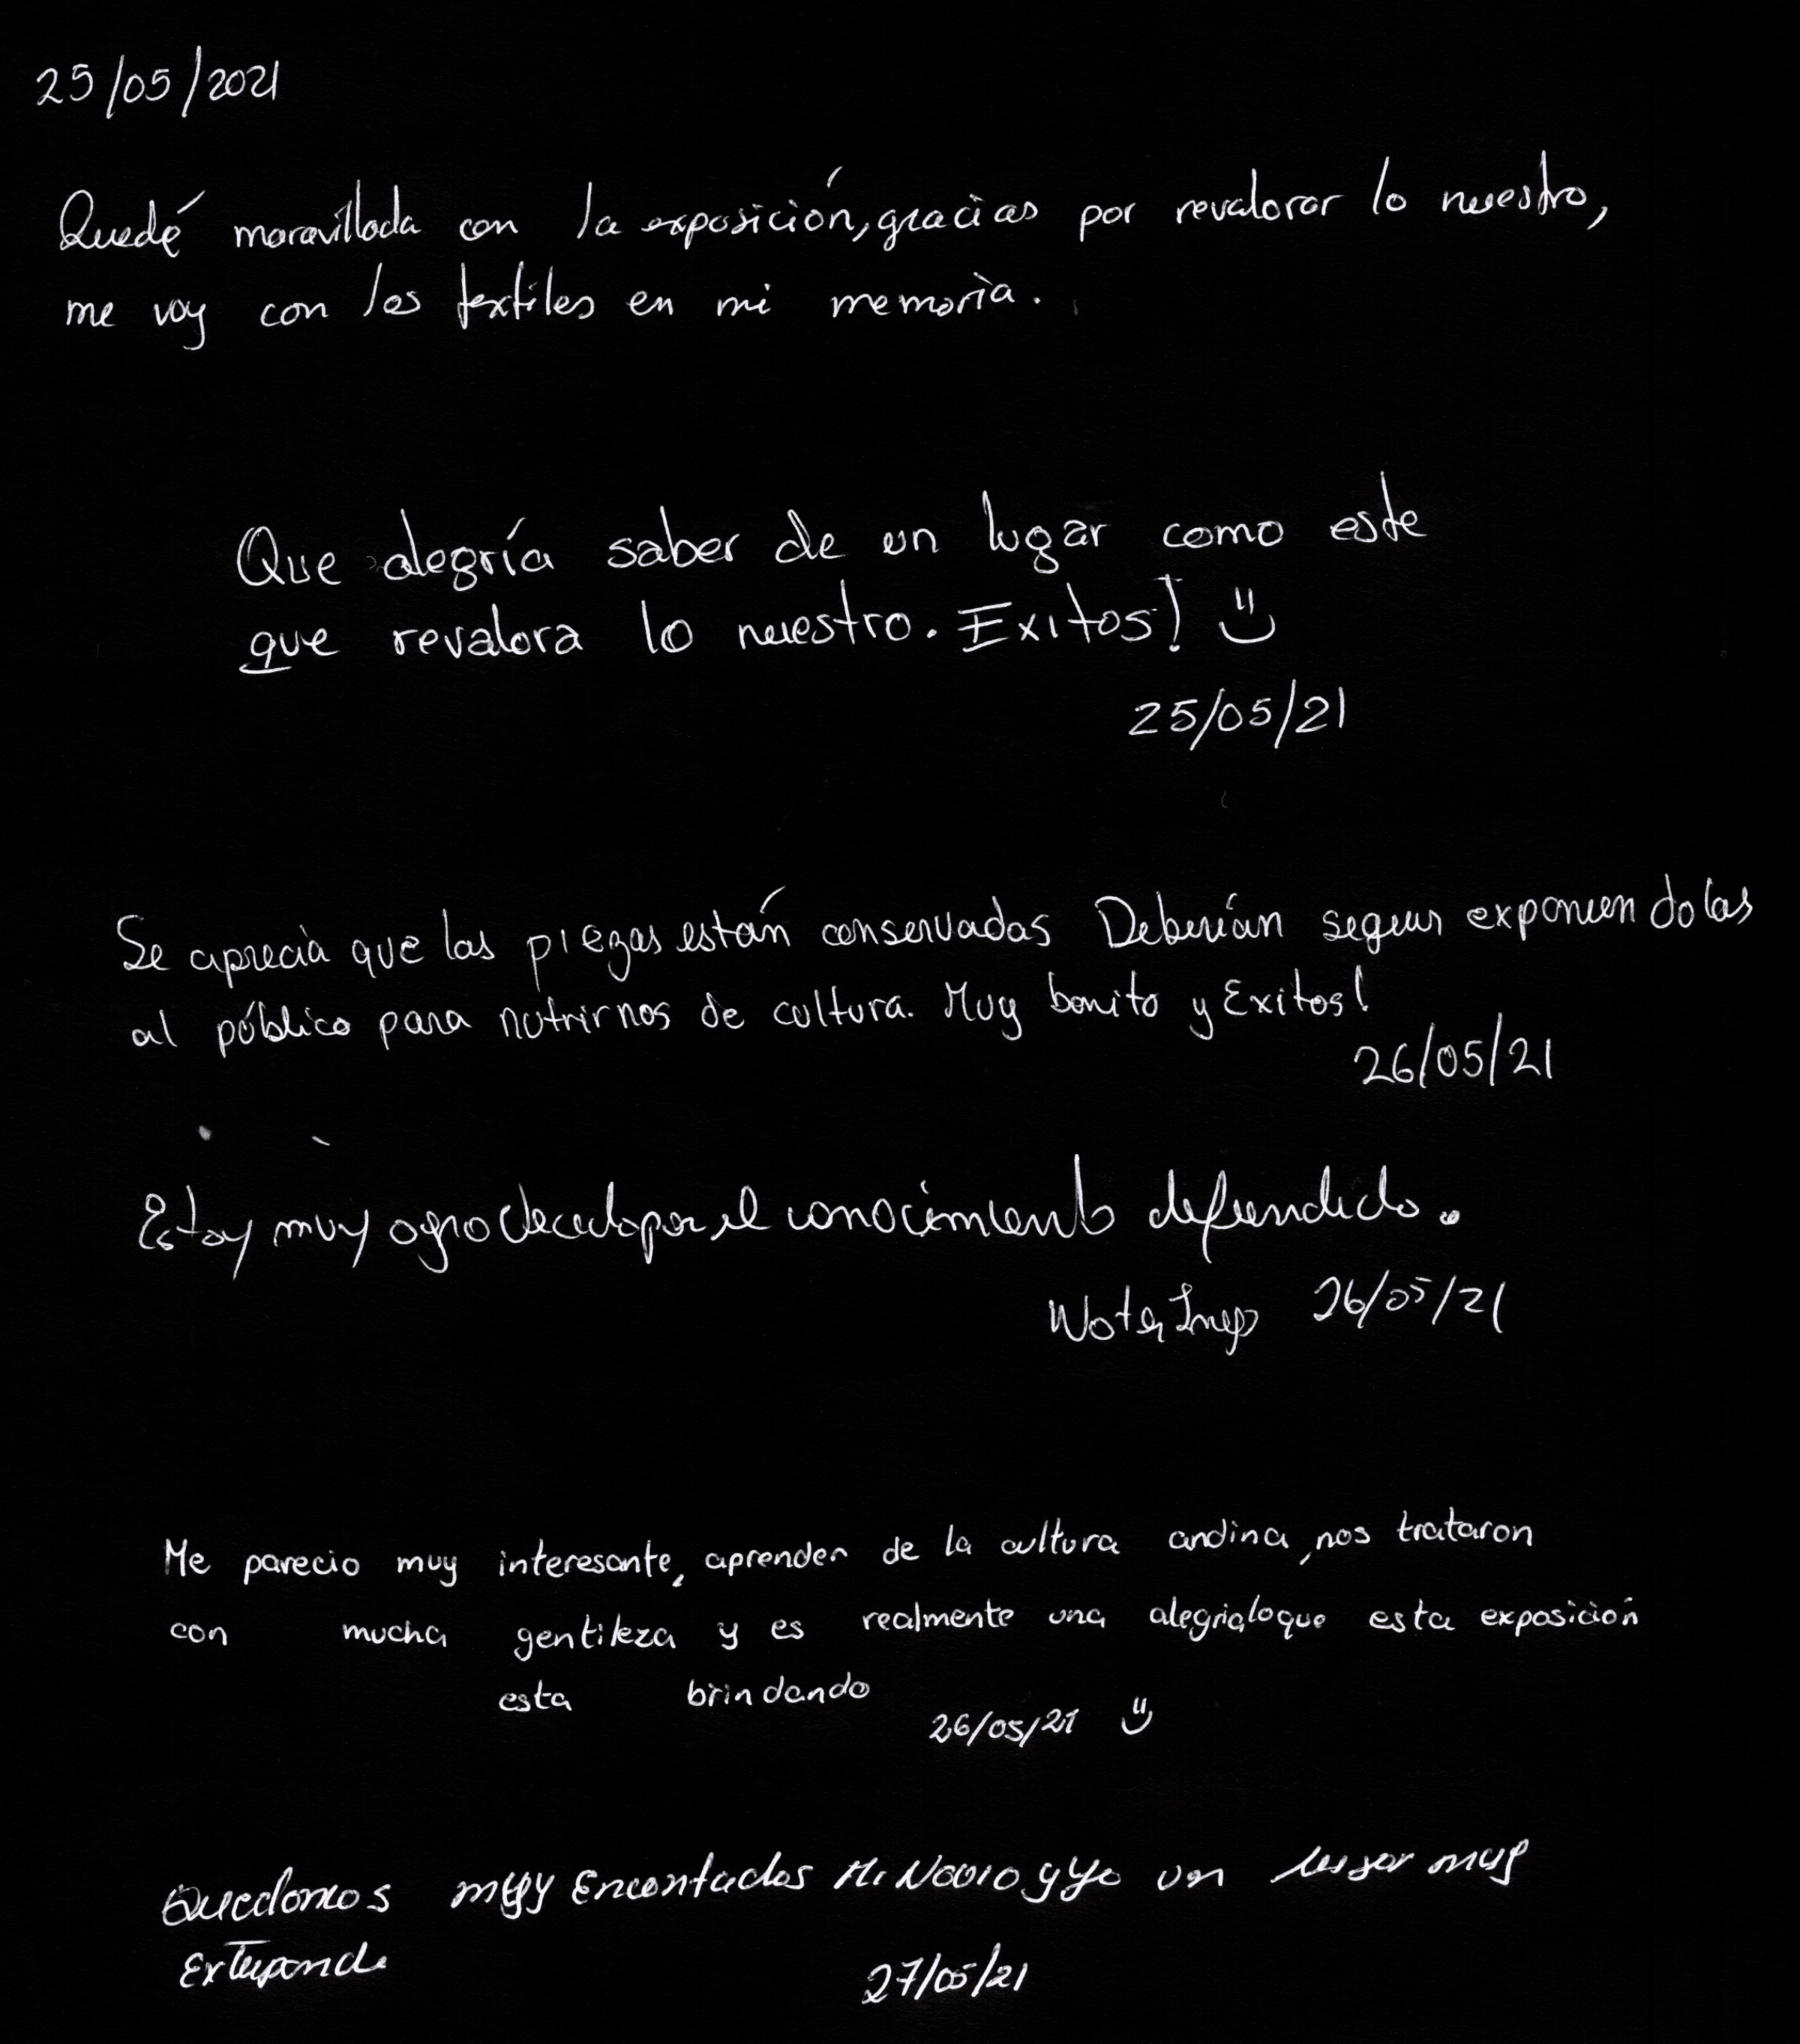 25/05/2021
Quedé maravillada con la exposición, gracias por revalorar lo nuestro,
me voy con los textiles en mi memoria.
Que alegría saber de un lugar como este
que revalora lo nuestro. Exitos! :)
25/05/21
Se aprecia que las piezas están conservadas Deberían seguir exponiendolas
al público para nutrirnos de cultura. Muy bonito y Exitos!
26/05/21
Estoy muy agradecido por el conocimiento defundido.
26/05/21
Me parecio muy interesante, aprender de la cultura andina, nos trataron
con mucha gentileza y es realmente una alegria lo que esta exposición
esta brindando
26/05/21 :)
Quedamos muy Encantados Mi Novio y yo un lugar muy
27/05/21